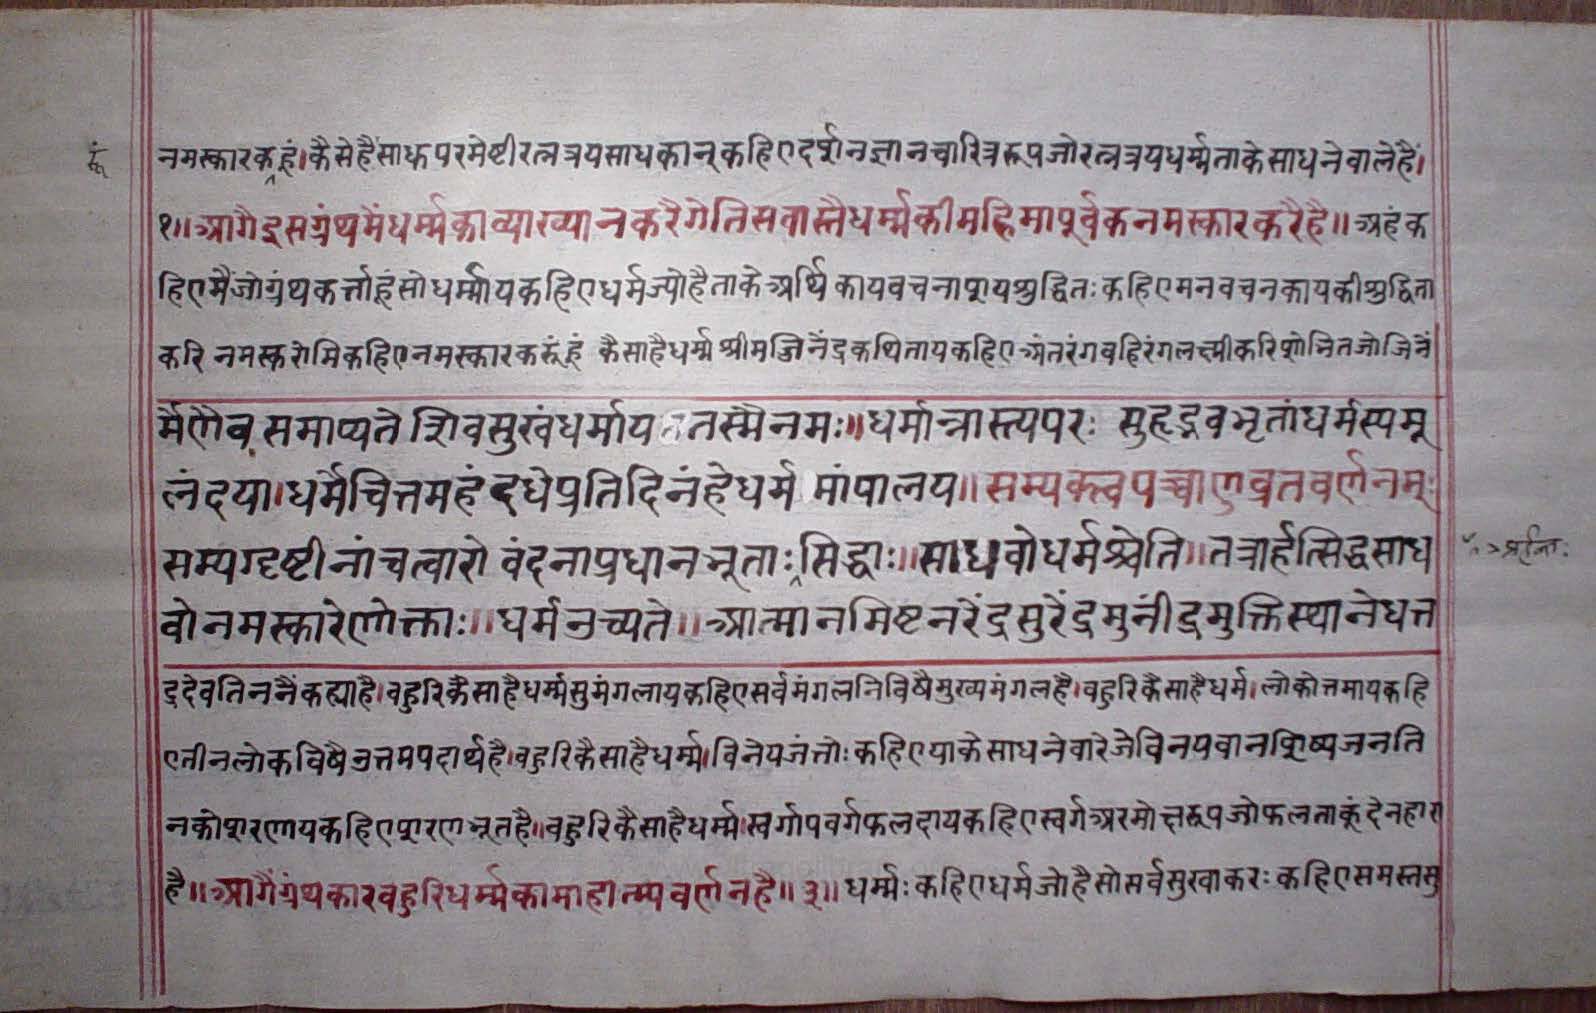 रूं
नमस्कारक‸हूं।कैसेहैंसाधूपरमेष्टीरत्नत्रयसाधकान्कहिएदर्शनज्ञानचारित्ररूपजोरत्नत्रयधर्म्मताकेसाधनेवालेहैं।
१॥आगैइसग्रंथमेंधर्म्मकाव्याख्यानकरैगेतिसवास्तैधर्म्मकीमहिमापूर्वकनमस्कारकरैहै॥अहंक
हिएमैंजोग्रंथकर्त्ताहूंसोधर्म्मायकहिएधर्मज्योहैताकेअर्थिकायवचनाशयशुद्धितःकहिएमनवचनकायकीशुद्धिता
करिनमस्करोमिकहिएनमस्कारकरूंहूं कैसाहैधर्म्मश्रीमज्जिनेंद्रकथितायकहिएअंतरंगवहिरंगलक्ष्मीकरिशोभितजोजिनें
र्मेणैव समाप्यते शिवसुखंधर्माय तस्मैनमः॥धर्मान्नास्त्यपरः सुहृद्भवभृतांधर्मस्यमू
लंदया।धर्मेचित्तमहंदधेप्रतिदिनंहेधर्म मांपालय॥सम्यक्त्वपञ्चाणुव्रतवर्णनम्ः
सम्यग्दृष्टीनांचत्वारो वंदनाप्रधानभूताः‸सिद्धाः॥साधवोधर्मश्चेति॥तत्रार्हत्सिद्धसाध
अर्हन्तः
वोनमस्कारेणोक्ताः॥धर्मउच्यते॥आत्मानमिष्टनरेंद्रसुरेंद्रमुनींद्रमुक्तिस्थानेधत्त
द्रदेवतिननैंकह्याहै।वहुरिकैसाहैधर्म्मसुमंगलायकहिएसर्वमंगलनिविषैमुख्यमंगलहै।वहुरिकैसाहैधर्म।लोकोत्तमायकहि
एतीनलोकविषैउत्तमपदार्थहै।वहुरिकैसाहैधर्म्म।विनेयजंतोःकहिएयाकेसाधनेवारेजेविनयवानशिष्यजनति
नकोशरणायकहिएशरणभूतहै॥वहुरिकैसाहैधर्म्म।स्वर्गापवर्गफलदायकहिएस्वर्गअरमोक्षरूपजोफलताकूंदेनहारा
है॥आगैंग्रंथकारवहुरिधर्म्मकामाहात्म्यवर्णनहै॥३॥धर्म्मःकहिएधर्मजोहैसोसर्वसुखाकरःकहिएसमस्तसु